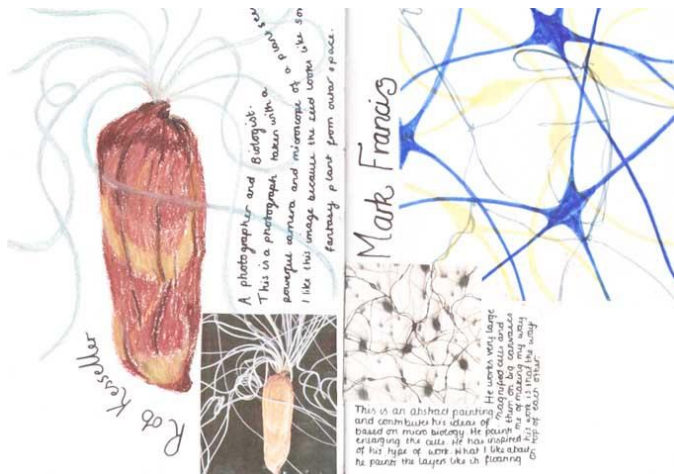 A photographer and Biologist.
This is a photograph taken with a
powerful camera and microscope of a plant seed
I like this image because the seed looks like
fantasy plant from outer space.
Rob Kesseller
Mark Francis
This is an abstract painting
and contributes his ideas of
based on micro biology. He paints
enlarging the cells. He has inspired
of his type of work. What I like about
he paints the layers like it's floating
He works very large
magnified cells and
them on big canvases
me of making my way
his work is that the way
on top of each other.